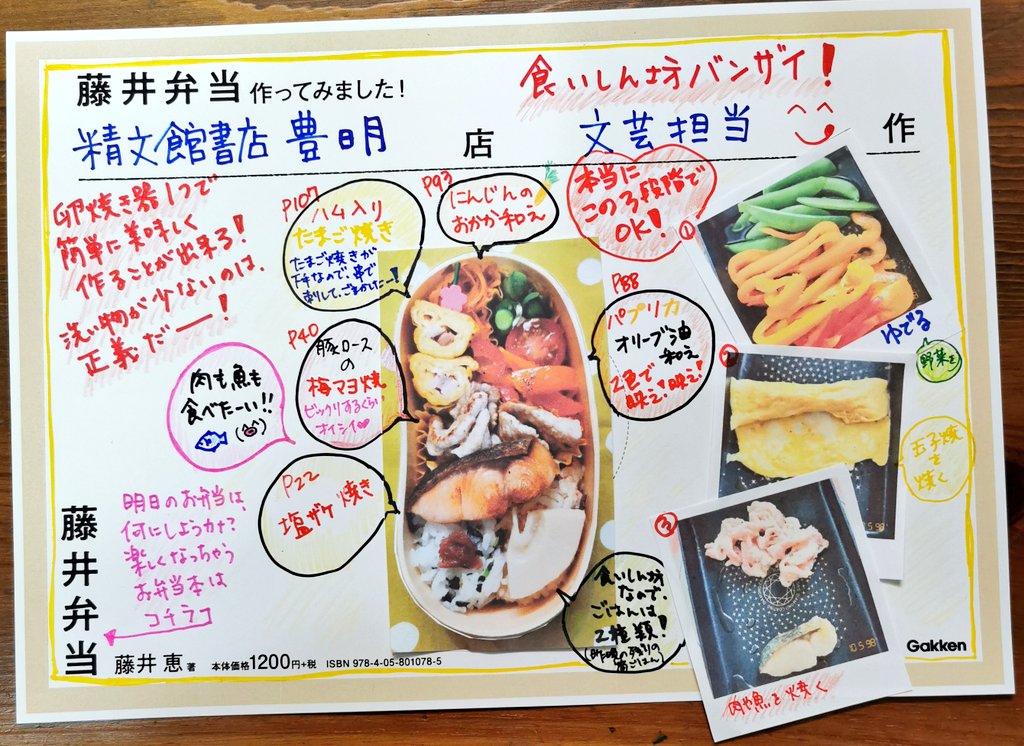 藤井弁当 作ってみました！
食いしん坊バンザイ！
精文館書店 豊明 店 文芸担当 作
卵焼き器1つで
簡単に美味しく
作ることが出来る！
洗い物が少ないのは、
正義だー！
P107
ハム入り
たまご焼き
たまご焼きが
下手なので、串で
刺して、ごまかしたー！
P93
にんじんの
おかか和え
本当に
この3段階で
OK！
①
ゆでる
野菜を
P40
豚ロース
の
梅マヨ焼
ビックリするくらい
オイシイ♡
P88
パプリカ
オリーブ油
和え
2色で
映え！映え！
②
玉子焼
を
焼く
肉も魚も
食べたーい!!
P22
塩ザケ焼き
③
食いしん坊
なので、
ごはんは
2種類！
10.5.98
肉や魚を焼く
明日のお弁当は、
何にしようカナ？
楽しくなっちゃう
お弁当本は
コチラ
藤井弁当
藤井 恵 著 本体価格1200円+税 ISBN 978-4-05-801078-5
Gakken